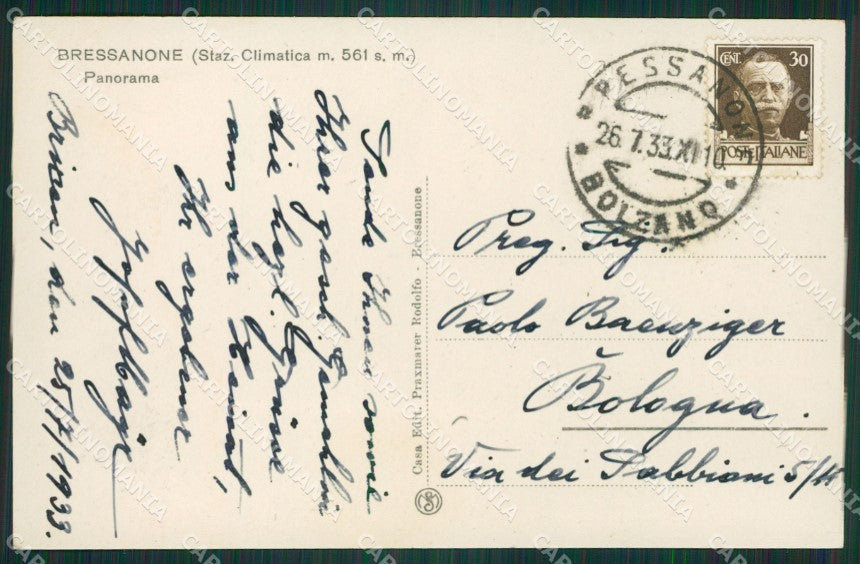 BRESSANONE (Staz. Climatica m. 561 s. m.)
Panorama
Sende Ihnen sowie
Ihrer gesch. Gemahlin
die herzl. Grüsse
aus der Heimat,
Ihr ergebener
Brixen, den 25/7/1933.
Casa Edit. Praxmarer Rodolfo - Bressanone
CENT. 30
POSTE ITALIANE
BRESSANONE
26.7.33.XI 10
* BOLZANO *
Preg. Sig.
Paolo Baenziger
Bologna.
Via dei Sabbioni 5/II
CARTOLINOMANIA